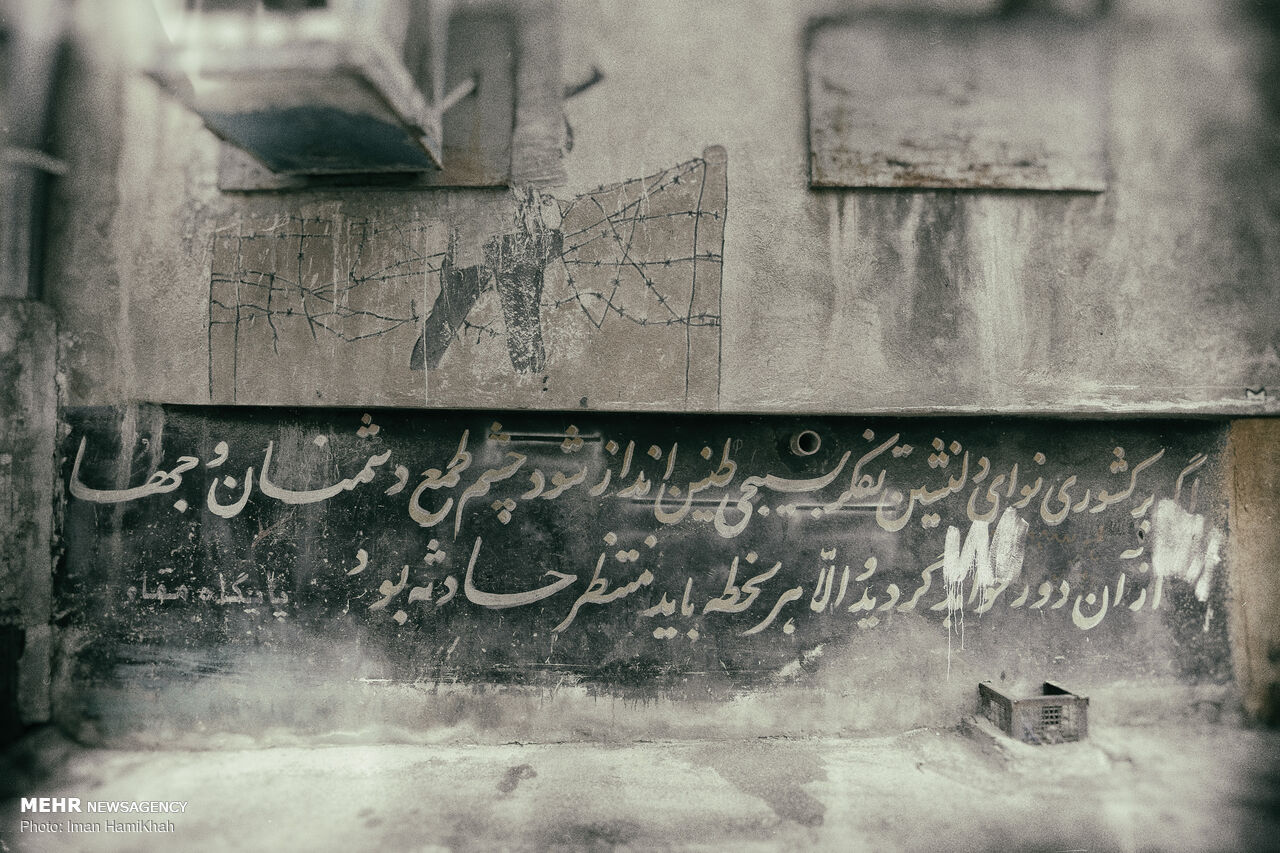 اگر بر کشوری نوای دلنشین تفکر بسیجی طنین انداز شود چشم طمع دشمنان و جهانخواران
از آن دور خواهد گردید والاّ هر لحظه باید منتظر حادثه بود
پایگاه مقداد
MEHR NEWSAGENCY
Photo: Iman HamiKhah